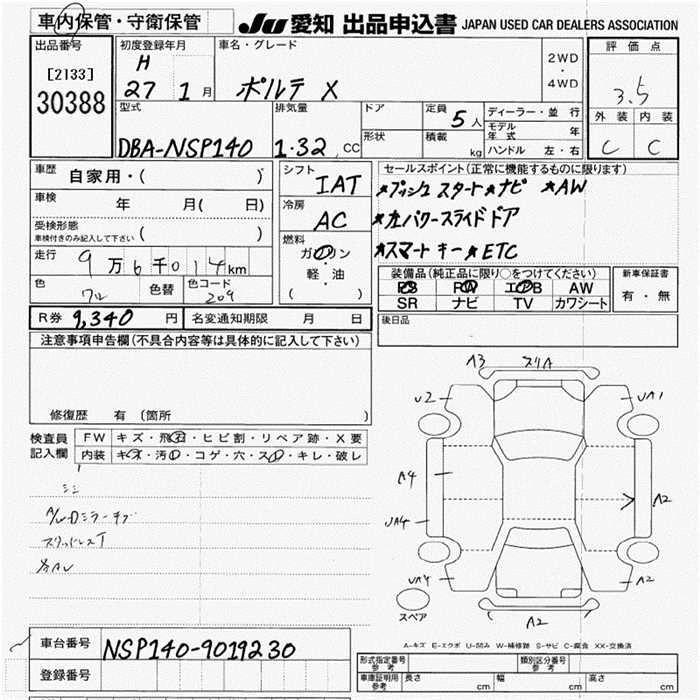 車内保管・守衛保管 JU愛知 出品申込書 JAPAN USED CAR DEALERS ASSOCIATION
出品番号 初度登録年月 車名・グレード 2WD ・ 4WD 評価点
[2133] H
30388 27 1月 ポルテ X 3.5
型式 排気量 ドア 定員 5人 ディーラー・並行 外装 内装
モデル年式 年
DBA-NSP140 1.32 cc 形状 積載 kg ハンドル 左・右 C C
車歴 自家用・( ) シフト IAT セールスポイント(正常に機能するものに限ります)
★プッシュスタート★ナビ ★AW
車検 年 月( 日) 冷房 AC ★左パワースライドドア
受検形態 ( )
車検付きのみ記入して下さい 燃料 ★スマートキー★ETC
走行 9万6千014km ガソリン・軽・油 装備品(純正品に限り○をつけてください) 新車保証書
PS PW エアB AW 有・無
色 ワル 色替 色コード 209 ( ) SR ナビ TV カワシート
R券 9,340円 名変通知期限 月 日 後日品
注意事項申告欄(不具合内容等は具体的に記入して下さい)
修復歴 有 (箇所 )
検査員記入欄 FW キズ・飛石・ヒビ割・リペア跡・X要
内装 キズ・汚れ・コゲ・穴・スレ・キレ・破レ
A3 スリA
U2 UA1
A4 A2
UA4
UA4 A2
スペア A2
A-キズ E-エクボ U-凹み W-補修跡 S-サビ C-腐食 XX-交換済
車台番号 NSP140-9019230
登録番号
形式指定番号参考 類別区分番号参考
車庫証明用参考 長さ cm 幅 cm 高さ cm